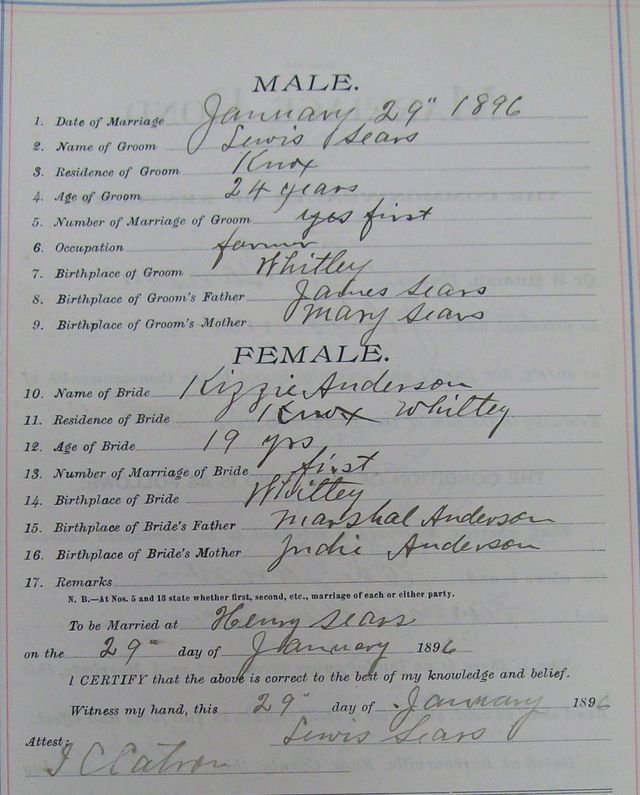 MALE.
1. Date of Marriage January 29" 1896
2. Name of Groom Lewis Sears
3. Residence of Groom Knox
4. Age of Groom 24 years
5. Number of Marriage of Groom yes first
6. Occupation farmer
7. Birthplace of Groom Whitley
8. Birthplace of Groom's Father James Sears
9. Birthplace of Groom's Mother Mary Sears
FEMALE.
10. Name of Bride Kizzie Anderson
11. Residence of Bride Knox Whitley
12. Age of Bride 19 yrs
13. Number of Marriage of Bride first
14. Birthplace of Bride Whitley
15. Birthplace of Bride's Father Marshal Anderson
16. Birthplace of Bride's Mother Judie Anderson
17. Remarks
N. B.—At Nos. 5 and 13 state whether first, second, etc., marriage of each or either party.
To be Married at Henry Sears
on the 29" day of January 1896
I CERTIFY that the above is correct to the best of my knowledge and belief.
Witness my hand, this 29" day of January 1896
Lewis Sears
Attest: J C Catron